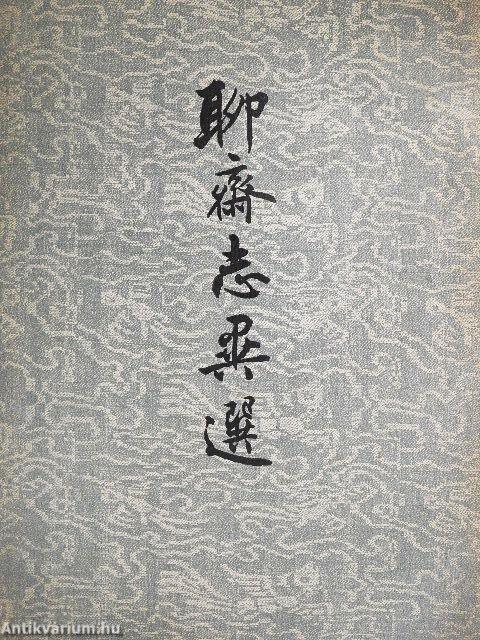 聊齋志異選
Antikvarium.hu